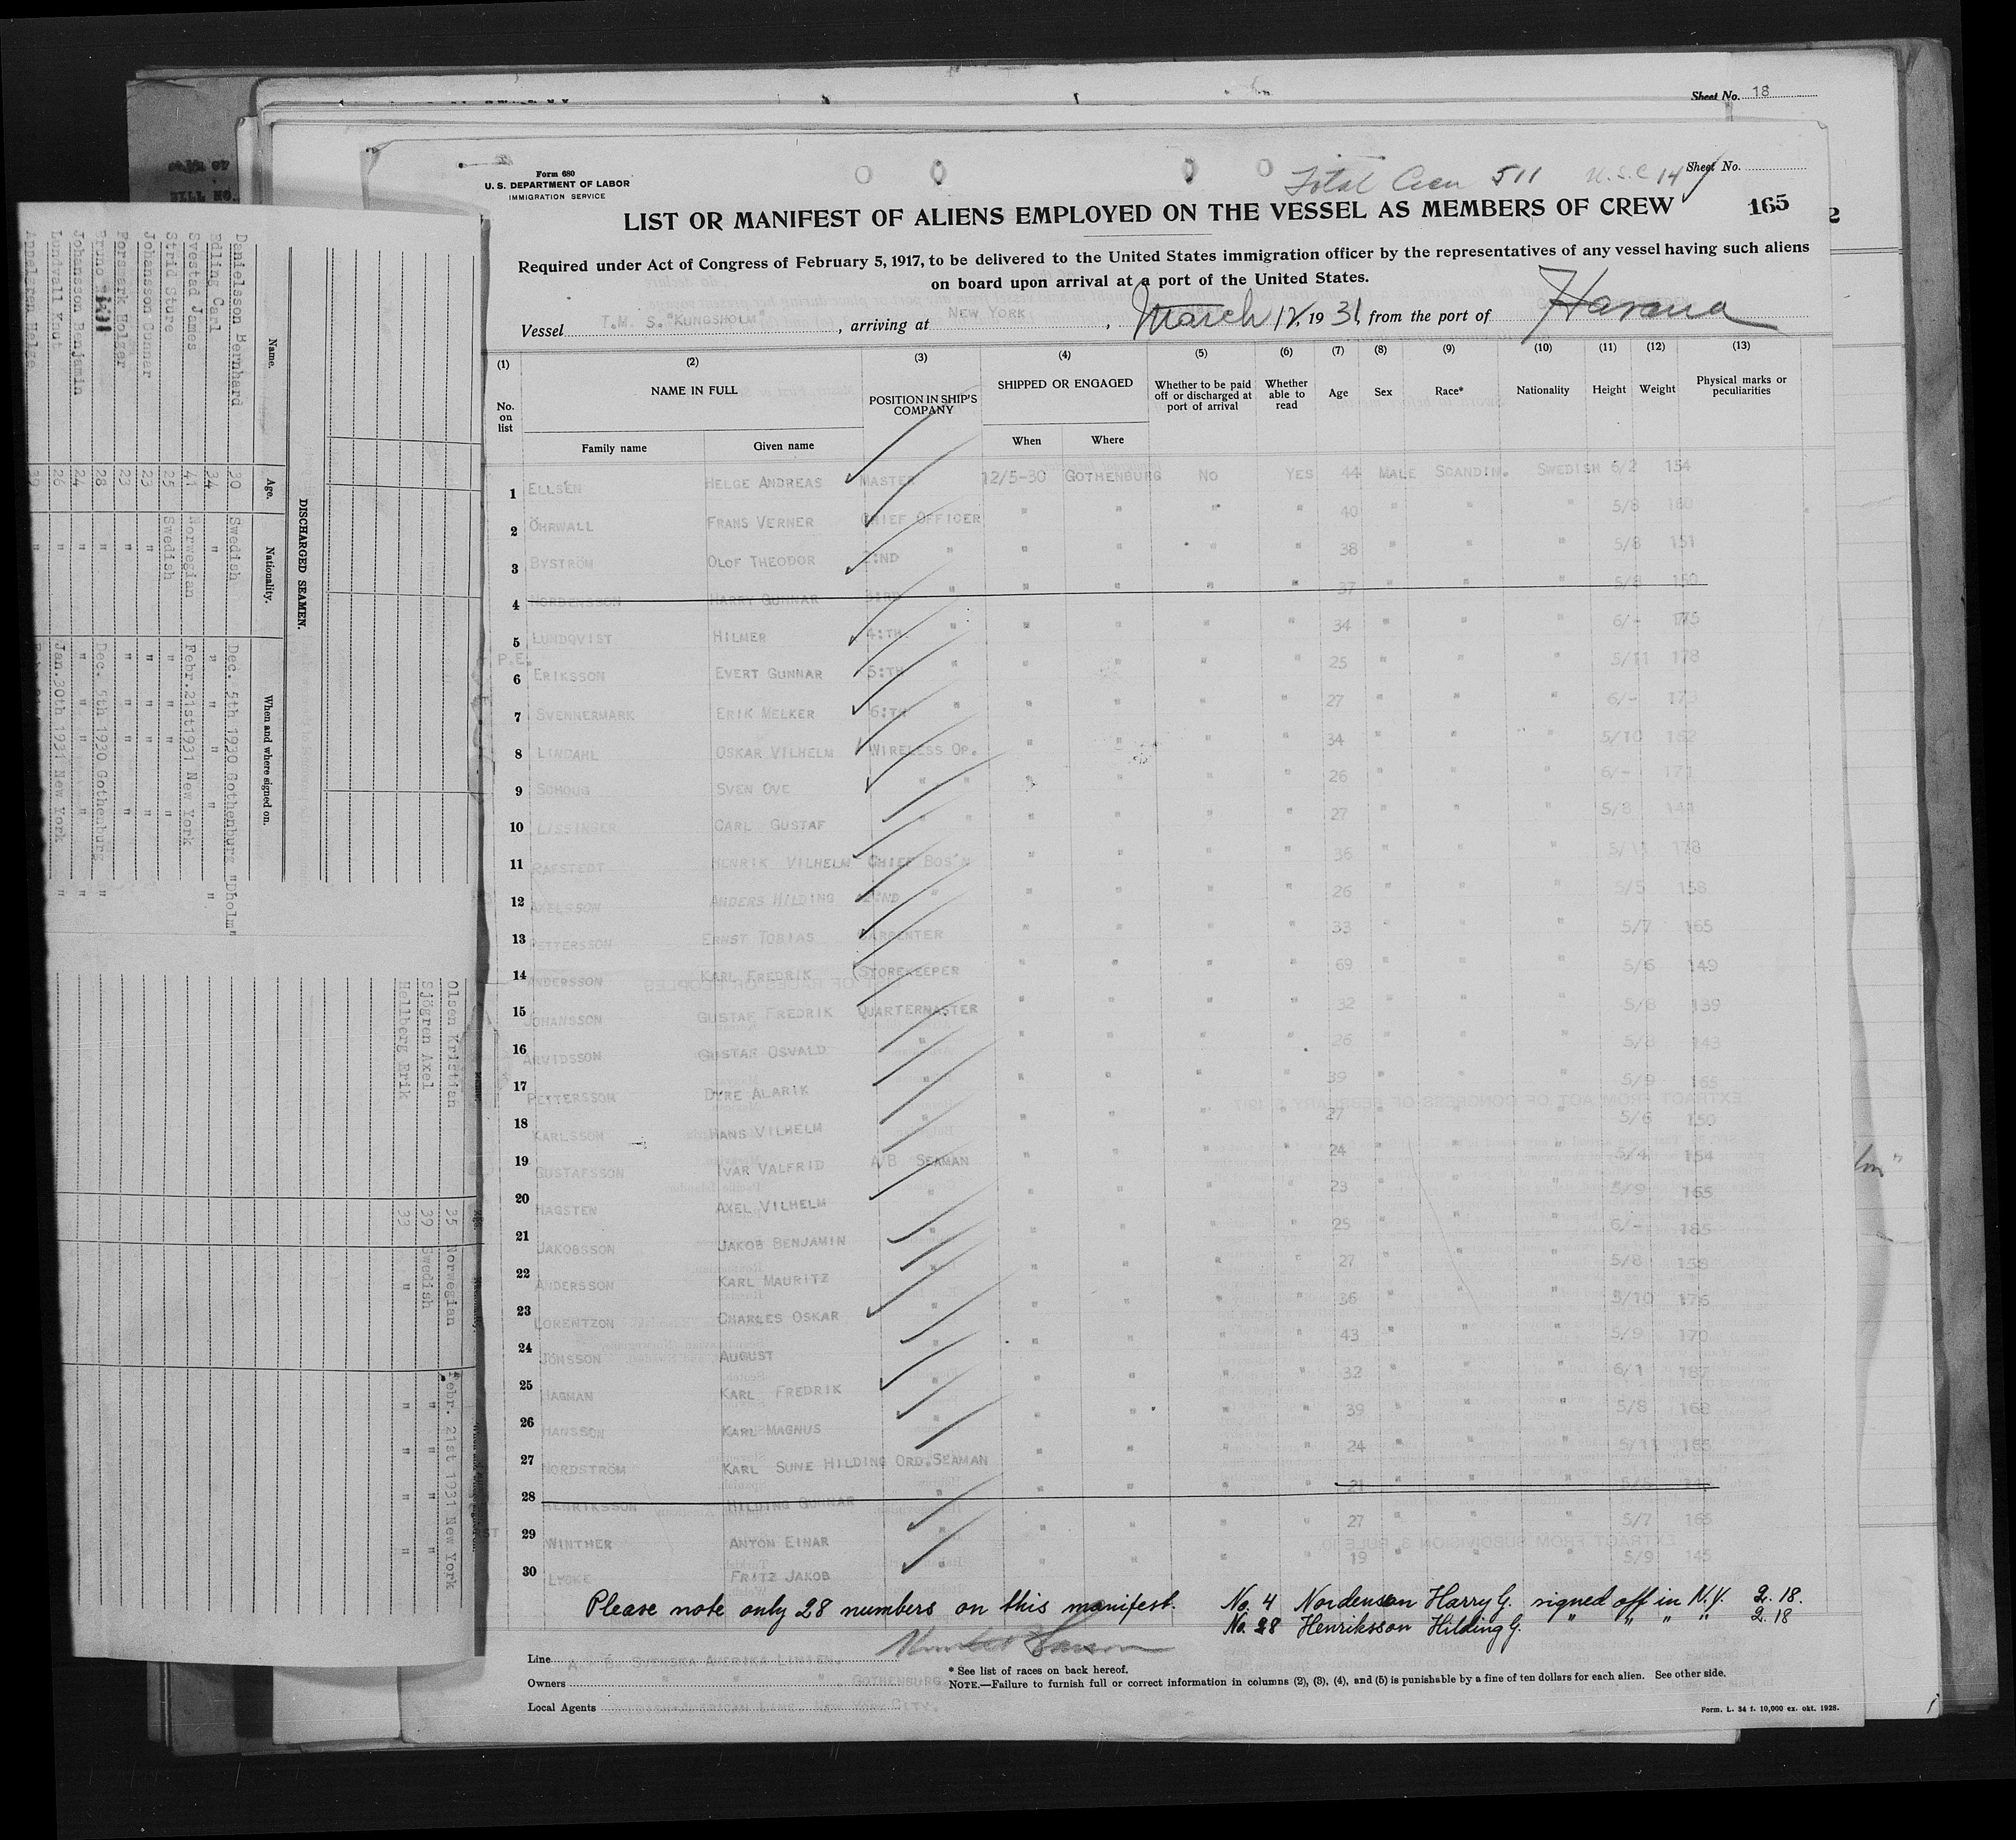 Sheet No. 18
Form 680
U. S. DEPARTMENT OF LABOR
IMMIGRATION SERVICE
Total Crew 511 U.S.C 14
Sheet No.
LIST OR MANIFEST OF ALIENS EMPLOYED ON THE VESSEL AS MEMBERS OF CREW 165
Required under Act of Congress of February 5, 1917, to be delivered to the United States immigration officer by the representatives of any vessel having such aliens
on board upon arrival at a port of the United States.
Vessel T.M. S. "KUNGSHOLM", arriving at NEW YORK, March 12, 1931, from the port of Havana
(1) (2) (3) (4) (5) (6) (7) (8) (9) (10) (11) (12) (13)
No. on list NAME IN FULL POSITION IN SHIP'S COMPANY SHIPPED OR ENGAGED Whether to be paid off or discharged at port of arrival Whether able to read Age Sex Race* Nationality Height Weight Physical marks or peculiarities
Family name Given name When Where
1 ELLSÉN HELGE ANDREAS MASTER 12/5-30 GOTHENBURG NO YES 44 MALE SCANDIN. SWEDISH 5/2 154
2 ÖHRWALL FRANS VERNER CHIEF OFFICER " " " " 40 " " " 5/8 160
3 BYSTRÖM OLOF THEODOR 2:ND " " " " " 38 " " " 5/8 151
4 NORDENSSON HARRY GUNNAR 3:RD " " " " 37 " " " 5/8 150
5 LUNDQVIST HILMER 4:TH " " " " " 34 " " " 6/- 175
P.E.
6 ERIKSSON EVERT GUNNAR 5:TH " " " " " 25 " " " 5/11 178
7 SVENNERMARK ERIK MELKER 6:TH " " " " 27 " " " 6/- 173
8 LINDAHL OSKAR VILHELM WIRELESS OP. " " " 34 " " " 5/10 162
9 SCHOUG SVEN OVE " " " " " 26 " " " 6/- 171
10 LISSINGER CARL GUSTAF " " " " " " 27 " " " 5/8 144
11 RAFSTEDT HENRIK VILHELM CHIEF BOS'N " " " " 36 " " " 5/11 178
12 AXELSSON ANDERS HILDING 2:ND " " " " " 26 " " " 5/5 158
13 PETTERSSON ERNST TOBIAS CARPENTER " " " " 33 " " " 5/7 165
14 ANDERSSON KARL FREDRIK STOREKEEPER " " " " 69 " " " 5/6 149
15 JOHANSSON GUSTAF FREDRIK QUARTERMASTER " " " " 32 " " " 5/8 139
16 ARVIDSSON GUSTAF OSVALD " " " " " 26 " " " 5/8 143
17 PETTERSSON DYRE ALARIK " " " " " 39 " " " 5/9 165
18 KARLSSON HANS VILHELM " " " " " 27 " " " 5/6 150
19 GUSTAFSSON IVAR VALFRID A/B SEAMAN " " " " 24 " " " 5/4 154
20 HAGSTEN AXEL VILHELM " " " " " 23 " " " 5/9 165
21 JAKOBSSON JAKOB BENJAMIN " " " " " 25 " " " 6/- 185
22 ANDERSSON KARL MAURITZ " " " " " 27 " " " 5/8 158
23 LORENTZON CHARLES OSKAR " " " " " 36 " " " 5/10 176
24 JÖNSSON AUGUST " " " " " 43 " " " 5/9 170
25 HAGMAN KARL FREDRIK " " " " " 32 " " " 6/1 187
26 HANSSON KARL MAGNUS " " " " " 39 " " " 5/8 168
27 NORDSTRÖM KARL SUNE HILDING ORD. SEAMAN " " " " 24 " " " 5/11 165
28 HENRIKSSON HILDING GUNNAR " " " " " 21 " " " 5/5
29 WINTHER ANTON EINAR " " " " " 27 " " " 5/7 165
30 LYCKE FRITZ JAKOB " " " " " 19 " " " 5/9 145
Please note only 28 numbers on this manifest. No. 4 Nordenson Harry G. signed off in N.Y. 2.18.
No. 28 Henriksson Hilding G. " " " " 2.18
Line A. B. SVENSKA AMERIKA LINIEN.
Owners " " " , GOTHENBURG
Local Agents SWEDISH AMERICAN LINE, NEW YORK CITY.
* See list of races on back hereof.
NOTE.—Failure to furnish full or correct information in columns (2), (3), (4), and (5) is punishable by a fine of ten dollars for each alien. See other side.
Form. L. 34 f. 10,000 ex. okt. 1928.
DISCHARGED SEAMEN.
Name. Age. Nationality. When and where signed on.
Danielsson Bernhard 30 Swedish Dec. 5th 1930 Gothenburg "Dholm"
Edling Carl 34 " " " " " "
Svestad James 41 Norwegian Febr. 21st 1931 New York
Strid Sture 25 Swedish " " " "
Johansson Gunnar 23 " " " " "
Forsmark Holger 23 " " " " "
Bruno 28 " Dec. 5th 1930 Gothenburg "
Johansson Benjamin 24 " " " " " "
Lundvall Knut 26 " Jan. 30th 1931 New York "
Appelgren Helge 39 "
Olsen Kristian 35 Norwegian Febr. 21st 1931 New York
Sjögren Axel 39 Swedish " " " "
Hellberg Erik 33 " " " " "